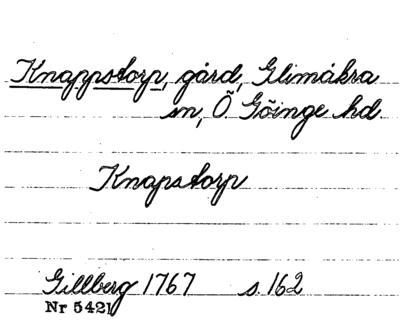 Knappstorp, gård, Glimåkra
sn, Ö. Göinge hd.
Knapstorp
Gillberg 1767 s. 162
Nr 5421